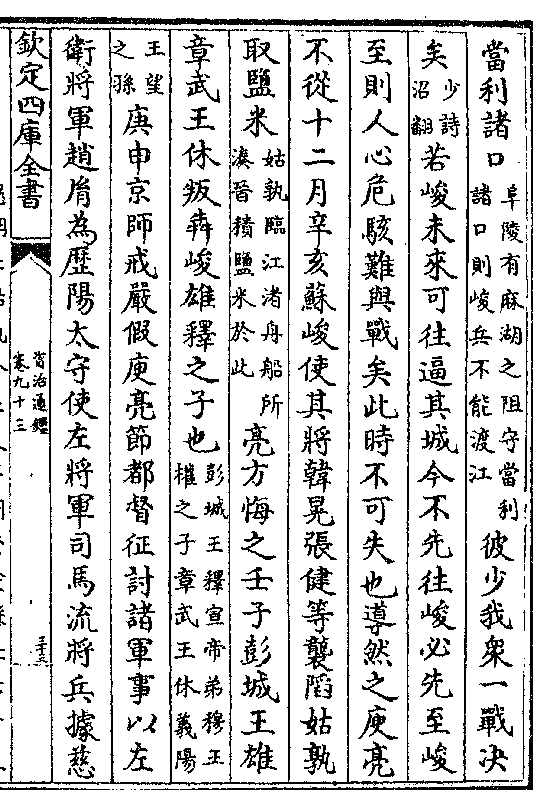 當利諸口阜陵有麻湖之阻守當利諸口則峻兵不能渡江彼少我衆一戰决
矣少詩沼翻若峻未來可往逼其城今不先往峻必先至峻
至則人心危駭難與戰矣此時不可失也導然之庾亮
不從十二月辛亥蘇峻使其將韓晃張健等襲䧟姑孰
取鹽米姑孰臨江渚舟船所湊晉積鹽米於此亮方悔之壬子彭城王雄
章武王休叛奔峻雄釋之子也彭城王釋宣帝弟穆王權之子章武王休義陽
王望之孫庚申京師戒嚴假庾亮節都督征討諸軍事以左
衛將軍趙胤為歷陽太守使左將軍司馬流將兵據慈
欽定四庫全書
資治通鑑
卷九十三